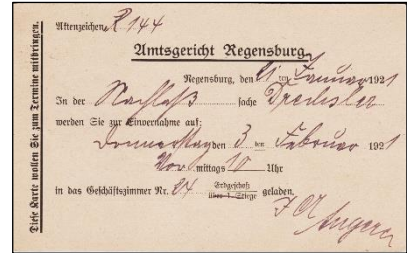 Diese Karte wollen Sie zum Termine mitbringen.
Aktenzeichen
144
Amtsgericht Regensburg
Regensburg, den 21 ten Januar 1921
In der Nachlaß sache Drechsler
werden Sie zur Einvernahme auf:
Donnerstag den 3 ten Februar 1921
Vor mittags 10 Uhr
in das Geschäftszimmer Nr. 84 Erdgeschoß geladen.
über 1. Stiege
Angerer